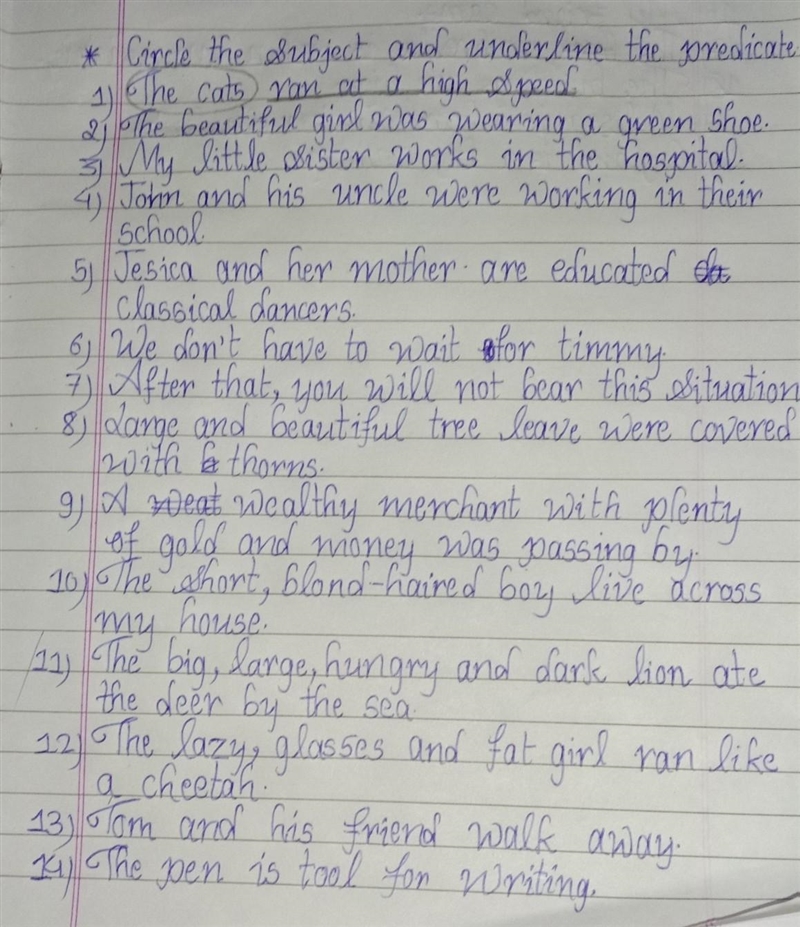 * Circle the subject and underline the predicate
1) The cats ran at a high speed.
2) The beautiful girl was wearing a green shoe.
3) My little sister works in the hospital.
4) John and his uncle were working in their
school.
5) Jesica and her mother are educated
classical dancers.
6) We don't have to wait for timmy.
7) After that, you will not bear this situation
8) Large and beautiful tree leave were covered
with thorns.
9) A wealthy merchant with plenty
of gold and money was passing by.
10) The short, blond-haired boy live across
my house.
11) The big, large, hungry and dark lion ate
the deer by the sea.
12) The lazy, glasses and fat girl ran like
a cheetah.
13) Tom and his friend walk away.
14) The pen is tool for writing.